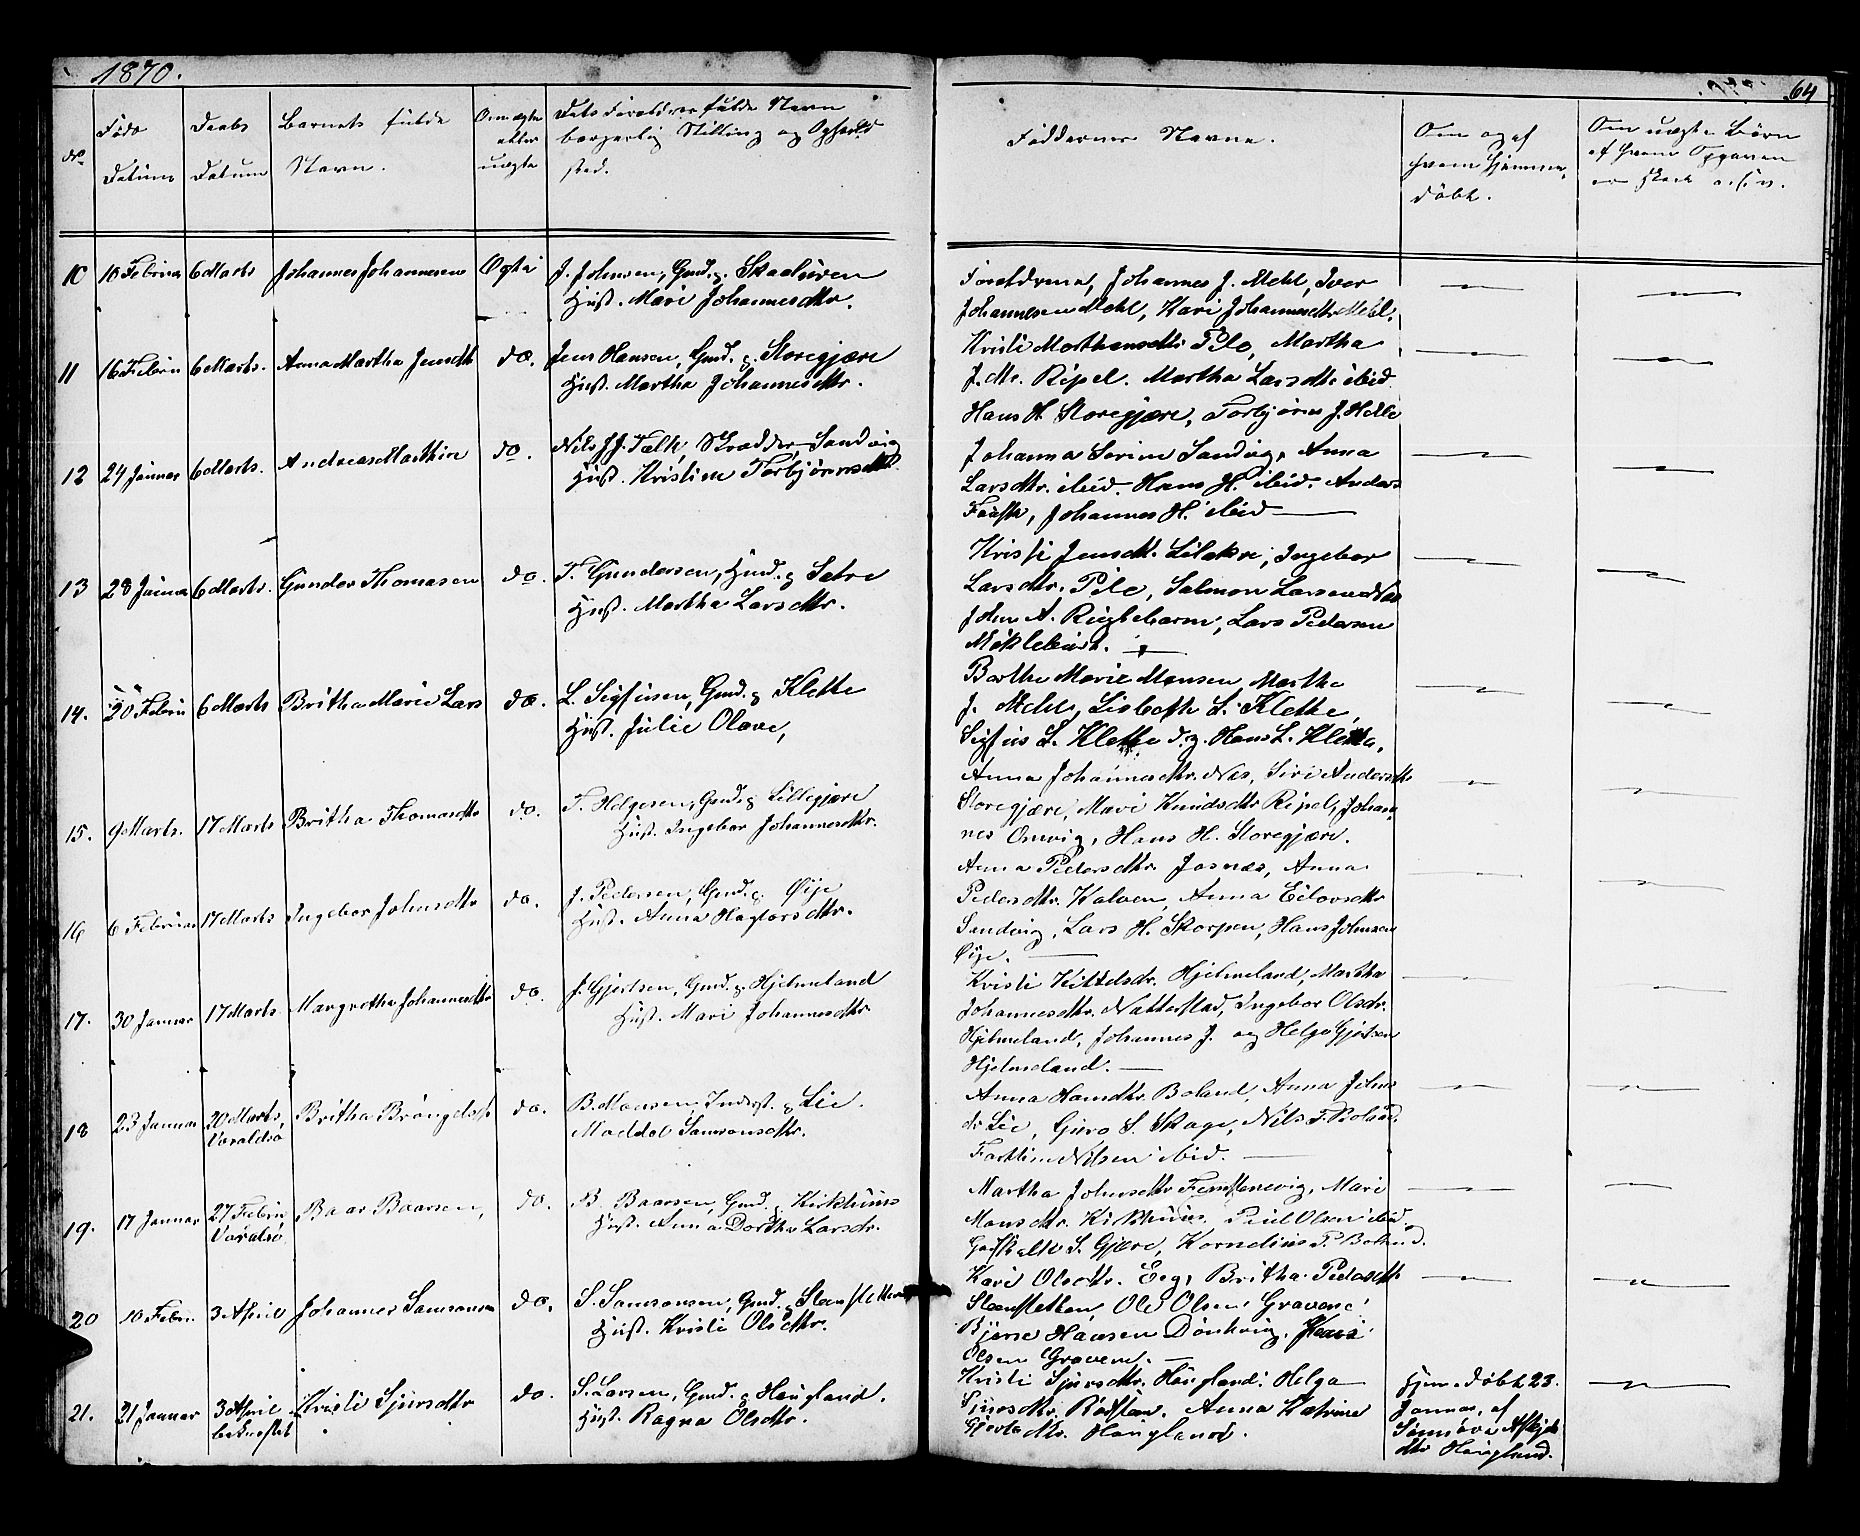 1870.
64
No
Føds Datum
Daabs Datum
Barnets fulde Navn.
Om ægte eller uægte
Dets Forældres fulde Navn borgerlig Stilling og Opholdssted.
Faddernes Navne.
Om og af hvem hjemmedøbt.
Om uægte Børn af hvem Opgaven er skeet
10 10 Februar 6 Marts Johannes Johannesen Ægte J. Johnsen, Gmd. Skaaluren
Hust. Mari Johannesdtr.
Forældrene, Johannes J. Mehl, Iver
Johannesen Mehl, Kari Johannesdtr Mehl.
11 16 Februar 6 Marts. Anna Martha Jensdtr do. Jens Hansen, Gmd. Storegjære
Hust. Martha Johannesdtr.
Kristi Mathiasdtr Pile, Martha
J.dtr. Ripel. Martha Larsdtr ibid.
Hans H. Storegjære, Torbjørn J. Helle
12 24 Januar 6 Marts. Andreas Marthin do. Nils J. J. Falk, Skrædder, Sandvig
Hust. Kristine Torbjørnsdtr.
Johanna Serine Sandvig, Anna
Larsdtr. ibid. Hans H. ibid. Anders
Johannes H. ibid
13 28 Januar 6 Marts. Gunder Thomasen do. T. Gundersen, Hmd. Sætre
Hust. Martha Larsdtr.
Kristi Jensdtr. Lilakre, Ingebor
Larsdtr. Pile, Salmon Larsen Næs
John A. Rugleharm, Lars Pedersen
Møklebust.
14. 20 Februar 6 Marts Britha Marie Lars do. L. Sigfusen, Gmd. Klette
Hust. Julie Olave,
Barthe Marie Monsen Martha
J. Mehl, Lisbeth L. Klette,
Sigfus L. Klette d.y. Hans L. Klette.
15. 9 Marts. 17 Marts Britha Thomasdtr do. T. Helgesen, Gmd. Lillegjære
Hust. Ingebor Johannesdtr.
Anna Johannesdtr. Næs, Siri Andersdtr
Storegjære, Mari Knudsdtr Ripel, Johan-
nes Omvig, Hans H. Storegjære.
16 6 Februar 17 Marts Ingebor Johnsdtr do. J. Pedersen, Gmd. Øije
Hust. Anna Hagtorsdtr.
Anna Pedersdtr. Josnæs, Anna
Pedersdtr. Kalven, Anna Eilovsdtr
Sandvig, Lars H. Skorpen, Hans Johnsen
Øije.
17. 30 Januar 17 Marts Margretha Johannesdtr do. J. Gjertsen, Gmd. Hjelmeland
Hust. Mari Johannesdtr.
Kristi Kittelsdr. Hjelmeland, Martha
Johannesdtr. Natterstad, Ingebor Olsdr.
Hjelmeland, Johannes J. og Helge Gjertsen
Hjelmeland.
18 23 Januar 20 Marts, Varaldsø Britha Bryngels do. B. Monsen, Inderst. Lie.
Maddel Samsonsdtr.
Anna Hansdtr. Boland, Anna Johns-
dr Lie, Guro S. Skage, Nils T. Boland,
Nilsen ibid.
19. 17 Januar 27 Februar Varaldsø Baar Baarsen, do. B. Baarsen, Gmd. Kirkhuus
Hust. Anna Dorthe Larsdr.
Martha Johnsdtr Femstenevig, Mari
Monsdtr. Kirkhuus. Paul Olsen ibid.
Godskalk S. Gjære, Kornelius T. Boland.
20 10 Febru. 3 April Johannes Samsonsen do. S. Samsonsen, Gmd. Steensletten
Hust. Kristi Olsdtr.
Kari Olsdtr. Eeg, Britha Pedersdtr
Steensletten, Ole Olsen Gravene
Bjørne Hansen Dønhvig,
Olsen Gravene.
21. 21 Januar 3 April bekræftet Kristi Sjursdtr do. S. Larsen, Gmd. Haugland.
Hust. Ragna Olsdtr.
Kristi Sjursdtr. Haugland. Helga
Sjursdtr. Anna Katrine
Haugland.
Hjemmedøbt 23.
Januar, af
Sunniva
dtr Haugland.